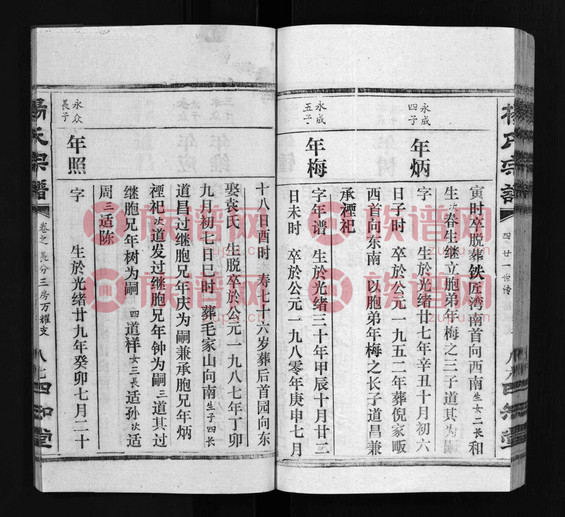 楊氏宗譜
四知堂
寅时卒脱葬铁匠湾南首向西南生女二长和
生次春生继立胞弟年梅之三子道其为嗣
永成四子
年炳
字 生於光绪廿七年辛丑十月初六
日子时 卒於公元一九五二年葬倪家畈
西首向东南以胞弟年梅之长子道昌兼
承禋祀
永成五子
年梅
字年谱 生於光绪三十年甲辰十月廿三
日未时 卒於公元一九八零年庚申七月
十八日酉时 寿七十六岁葬后首园向东
娶袁氏 生脱卒於公元一九八七年丁卯
九月初七日巳时 葬毛家山向南生子四长
道昌过继胞兄年庆为嗣兼承胞兄年炳
禋祀次道发过继胞兄年钟为嗣三道其过
继胞兄年树为嗣四道样女三長适孙次适
周三适陈
永众長子
年照
字 生於光绪廿九年癸卯七月二十
楊氏宗譜
卷之 長分三房万耀支
八七
四知堂